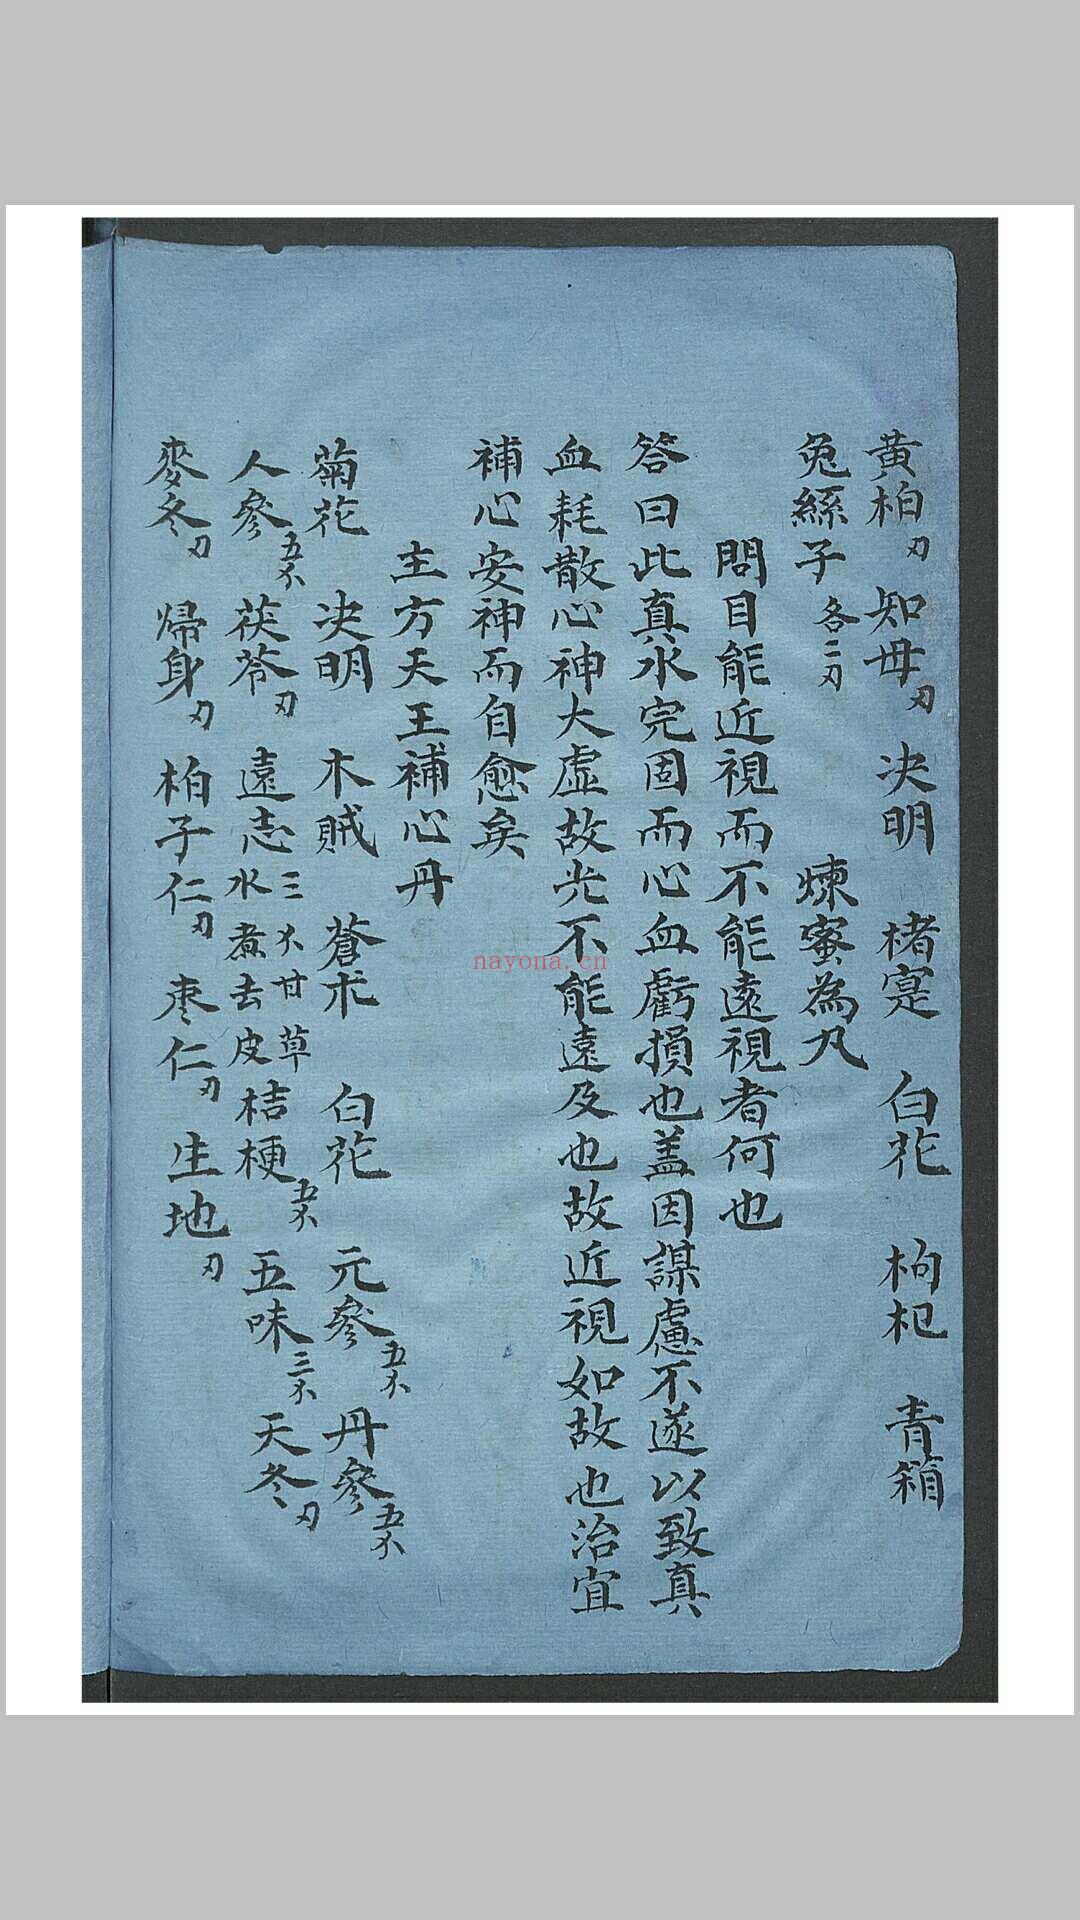 黄柏刃 知母刃 决明 楮寔 白花 枸杞 青箱
兔絲子各二刃 煉蜜為丸
問目能近視而不能遠視者何也
答曰此真水完固而心血虧損也盖因謀慮不遂以致真
血耗散心神大虛故光不能遠及也故近視如故也治宜
補心安神而自愈矣
主方天王補心丹
菊花 决明 木賊 蒼朮 白花 元參五不 丹參五不
人參五不 茯苓刃 遠志三不甘草水煮去皮 桔梗五不 五味三不 天冬刃
麥冬刃 歸身刃 柏子仁刃 枣仁刃 生地刃
nayona.cn